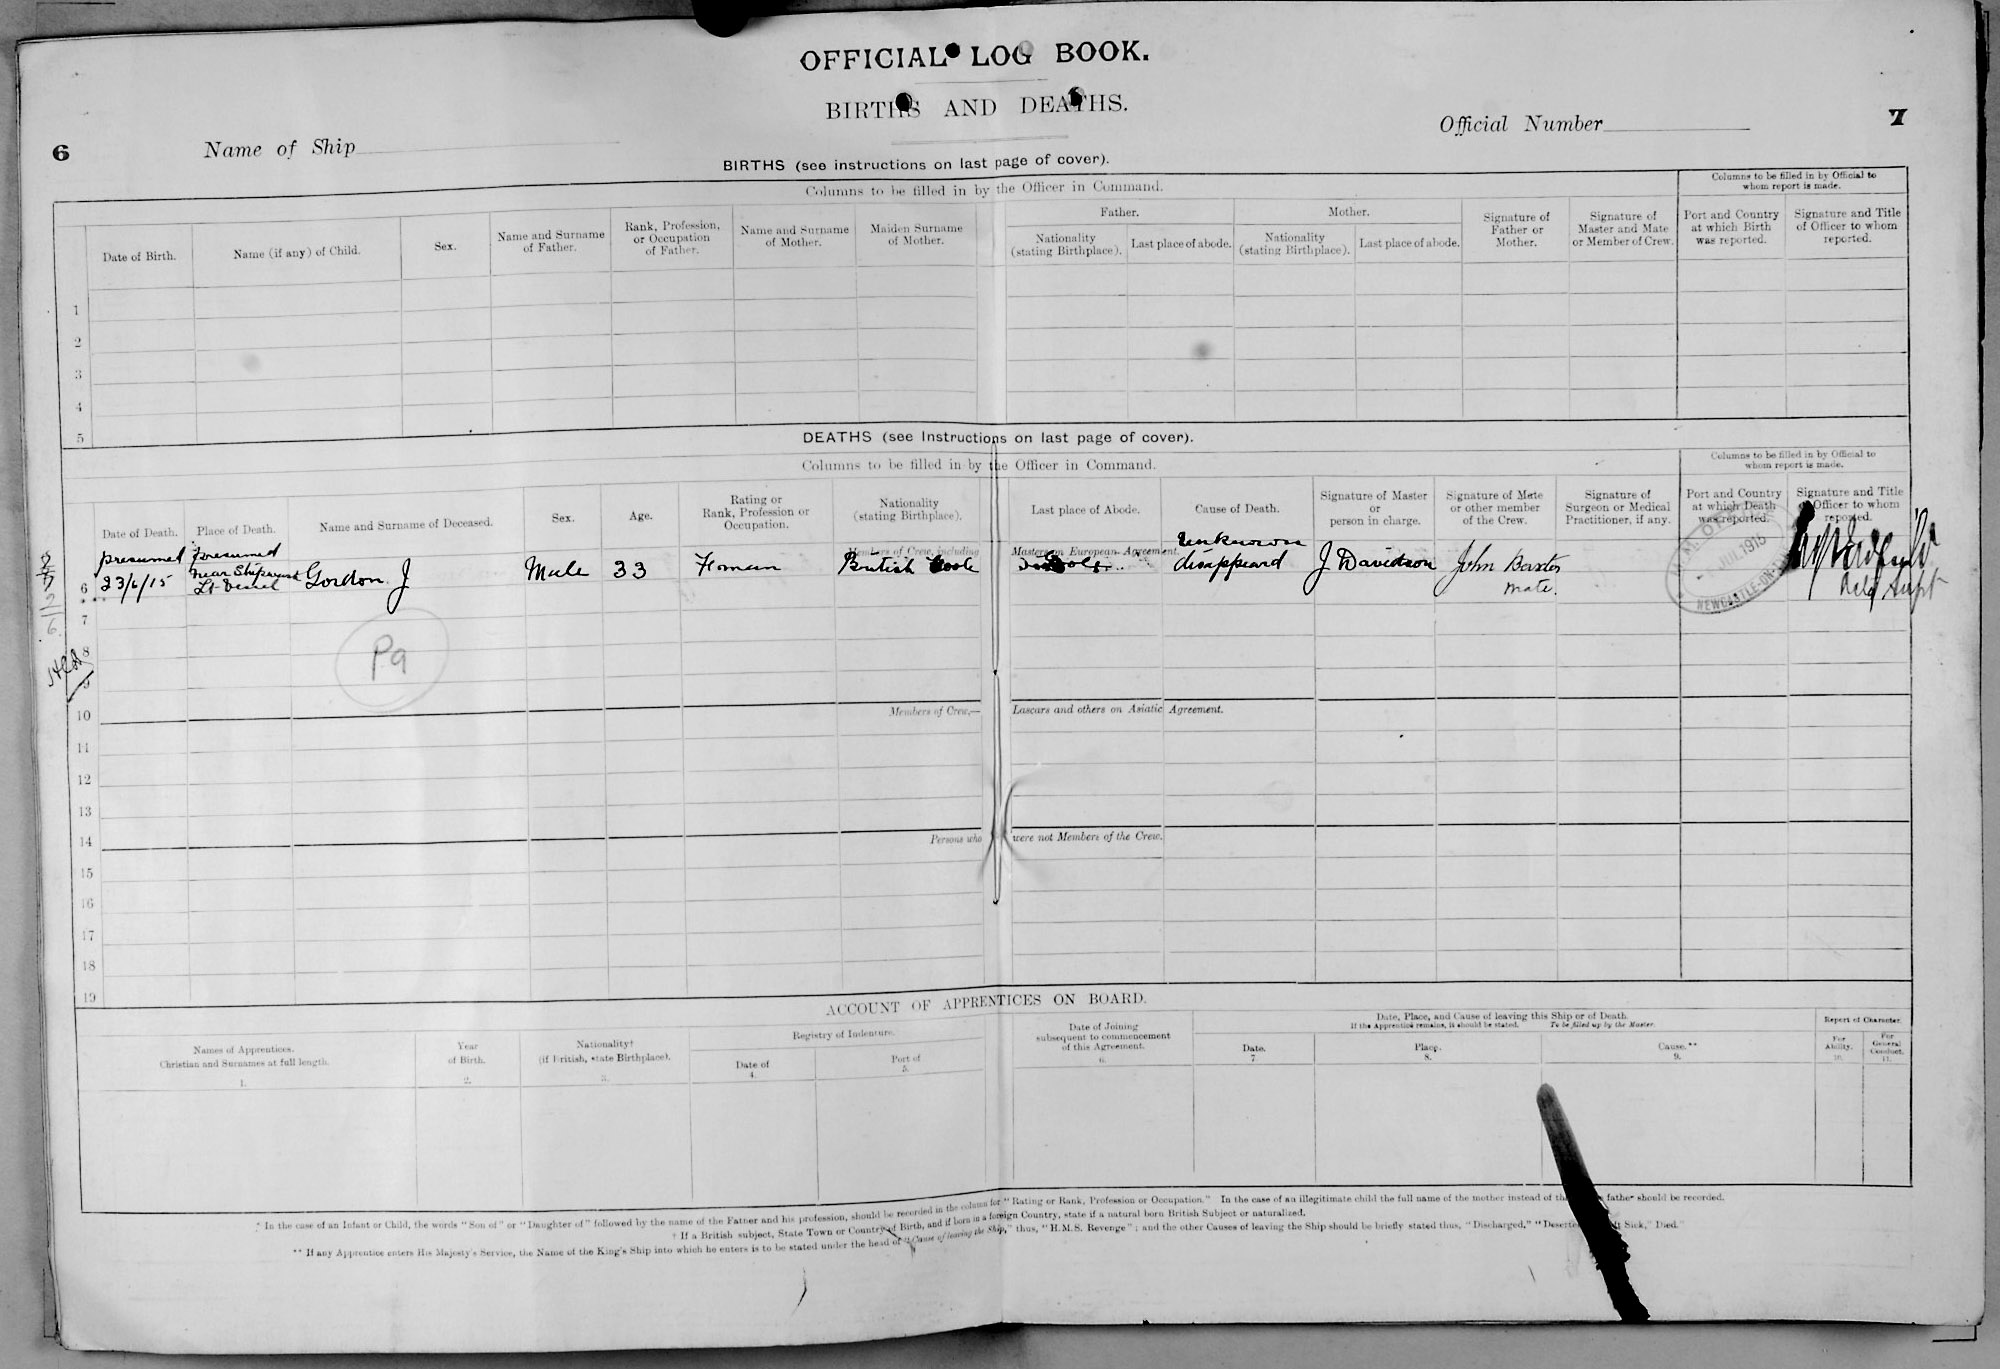 OFFICIAL LOG BOOK.
BIRTHS AND DEATHS.
6
Name of Ship
Official Number
7
BIRTHS (see instructions on last page of cover).
Columns to be filled in by the Officer in Command.
Columns to be filled in by Official to whom report is made.
Date of Birth.
Name (if any) of Child.
Sex.
Name and Surname of Father.
Rank, Profession, or Occupation of Father.
Name and Surname of Mother.
Maiden Surname of Mother.
Father.
Nationality (stating Birthplace).
Last place of abode.
Mother.
Nationality (stating Birthplace).
Last place of abode.
Signature of Father or Mother.
Signature of Master and Mate or Member of Crew.
Port and Country at which Birth was reported.
Signature and Title of Officer to whom reported.
1
2
3
4
5
DEATHS (see Instructions on last page of cover).
Columns to be filled in by the Officer in Command.
Columns to be filled in by Official to whom report is made.
Date of Death.
Place of Death.
Name and Surname of Deceased.
Sex.
Age.
Rating or Rank, Profession or Occupation.
Nationality (stating Birthplace).
Last place of Abode.
Cause of Death.
Signature of Master or person in charge.
Signature of Mate or other member of the Crew.
Signature of Surgeon or Medical Practitioner, if any.
Port and Country at which Death was reported.
Signature and Title of Officer to whom reported.
Members of Crew, including Masters on European Agreement.
6
presumed 23/6/15
presumed near Shipwash Lt Vessel
Gordon J
Male
33
Fireman
British Goole
Goole
Unknown disappeard
J Davidson
John Baxter Mate.
JUL 1915
NEWCASTLE-ON-
Supt
7
8
9
Pa
10
Members of Crew,— Lascars and others on Asiatic Agreement.
11
12
13
14
Persons who were not Members of the Crew.
15
16
17
18
19
ACCOUNT OF APPRENTICES ON BOARD.
Names of Apprentices. Christian and Surnames at full length. 1.
Year of Birth. 2.
Nationality† (if British, state Birthplace). 3.
Registry of Indenture.
Date of 4.
Port of 5.
Date of Joining subsequent to commencement of this Agreement. 6.
Date, Place, and Cause of leaving this Ship or of Death.
If the Apprentice remains, it should be stated. To be filled up by the Master.
Date. 7.
Place. 8.
Cause.** 9.
Report of Character.
For Ability. 10.
For General Conduct. 11.
* In the case of an Infant or Child, the words "Son of" or "Daughter of" followed by the name of the Father and his profession, should be recorded in the column for "Rating or Rank, Profession or Occupation." In the case of an illegitimate child the full name of the mother instead of the father should be recorded.
† If a British subject, State Town or Country of Birth, and if born in a foreign Country, state if a natural born British Subject or naturalized.
** If any Apprentice enters His Majesty's Service, the Name of the King's Ship into which he enters is to be stated under the head of "Cause of leaving the Ship," thus, "H.M.S. Revenge"; and the other Causes of leaving the Ship should be briefly stated thus, "Discharged," "Deserted," Sick," Died."